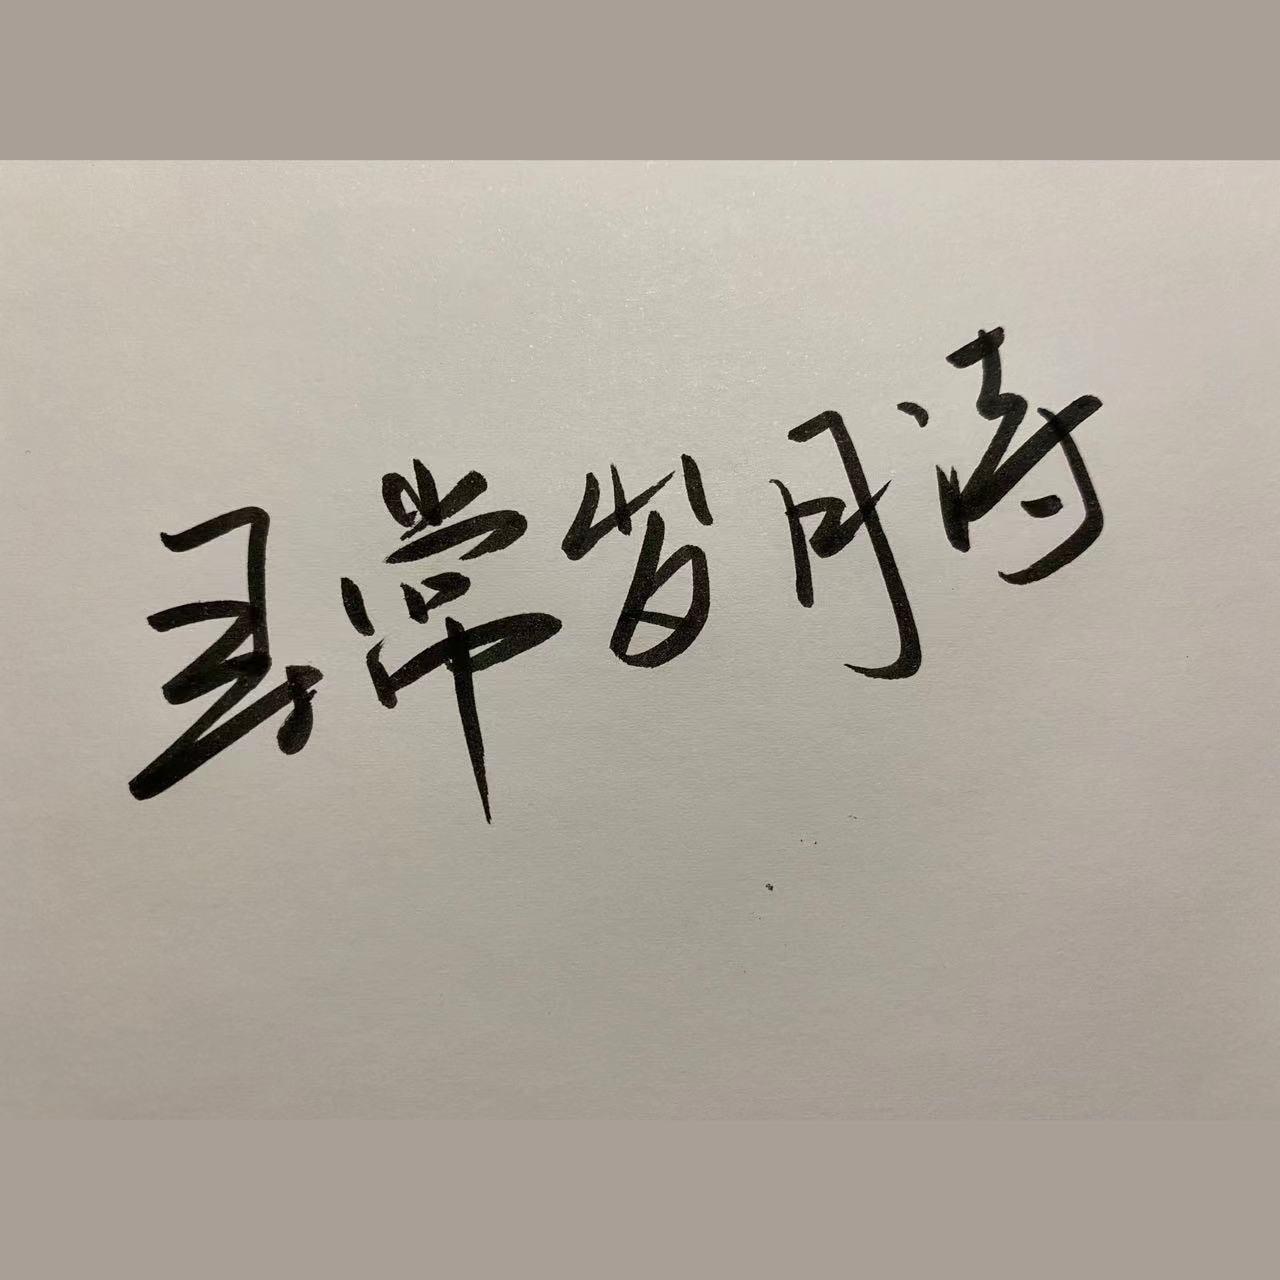 寻常岁月诗